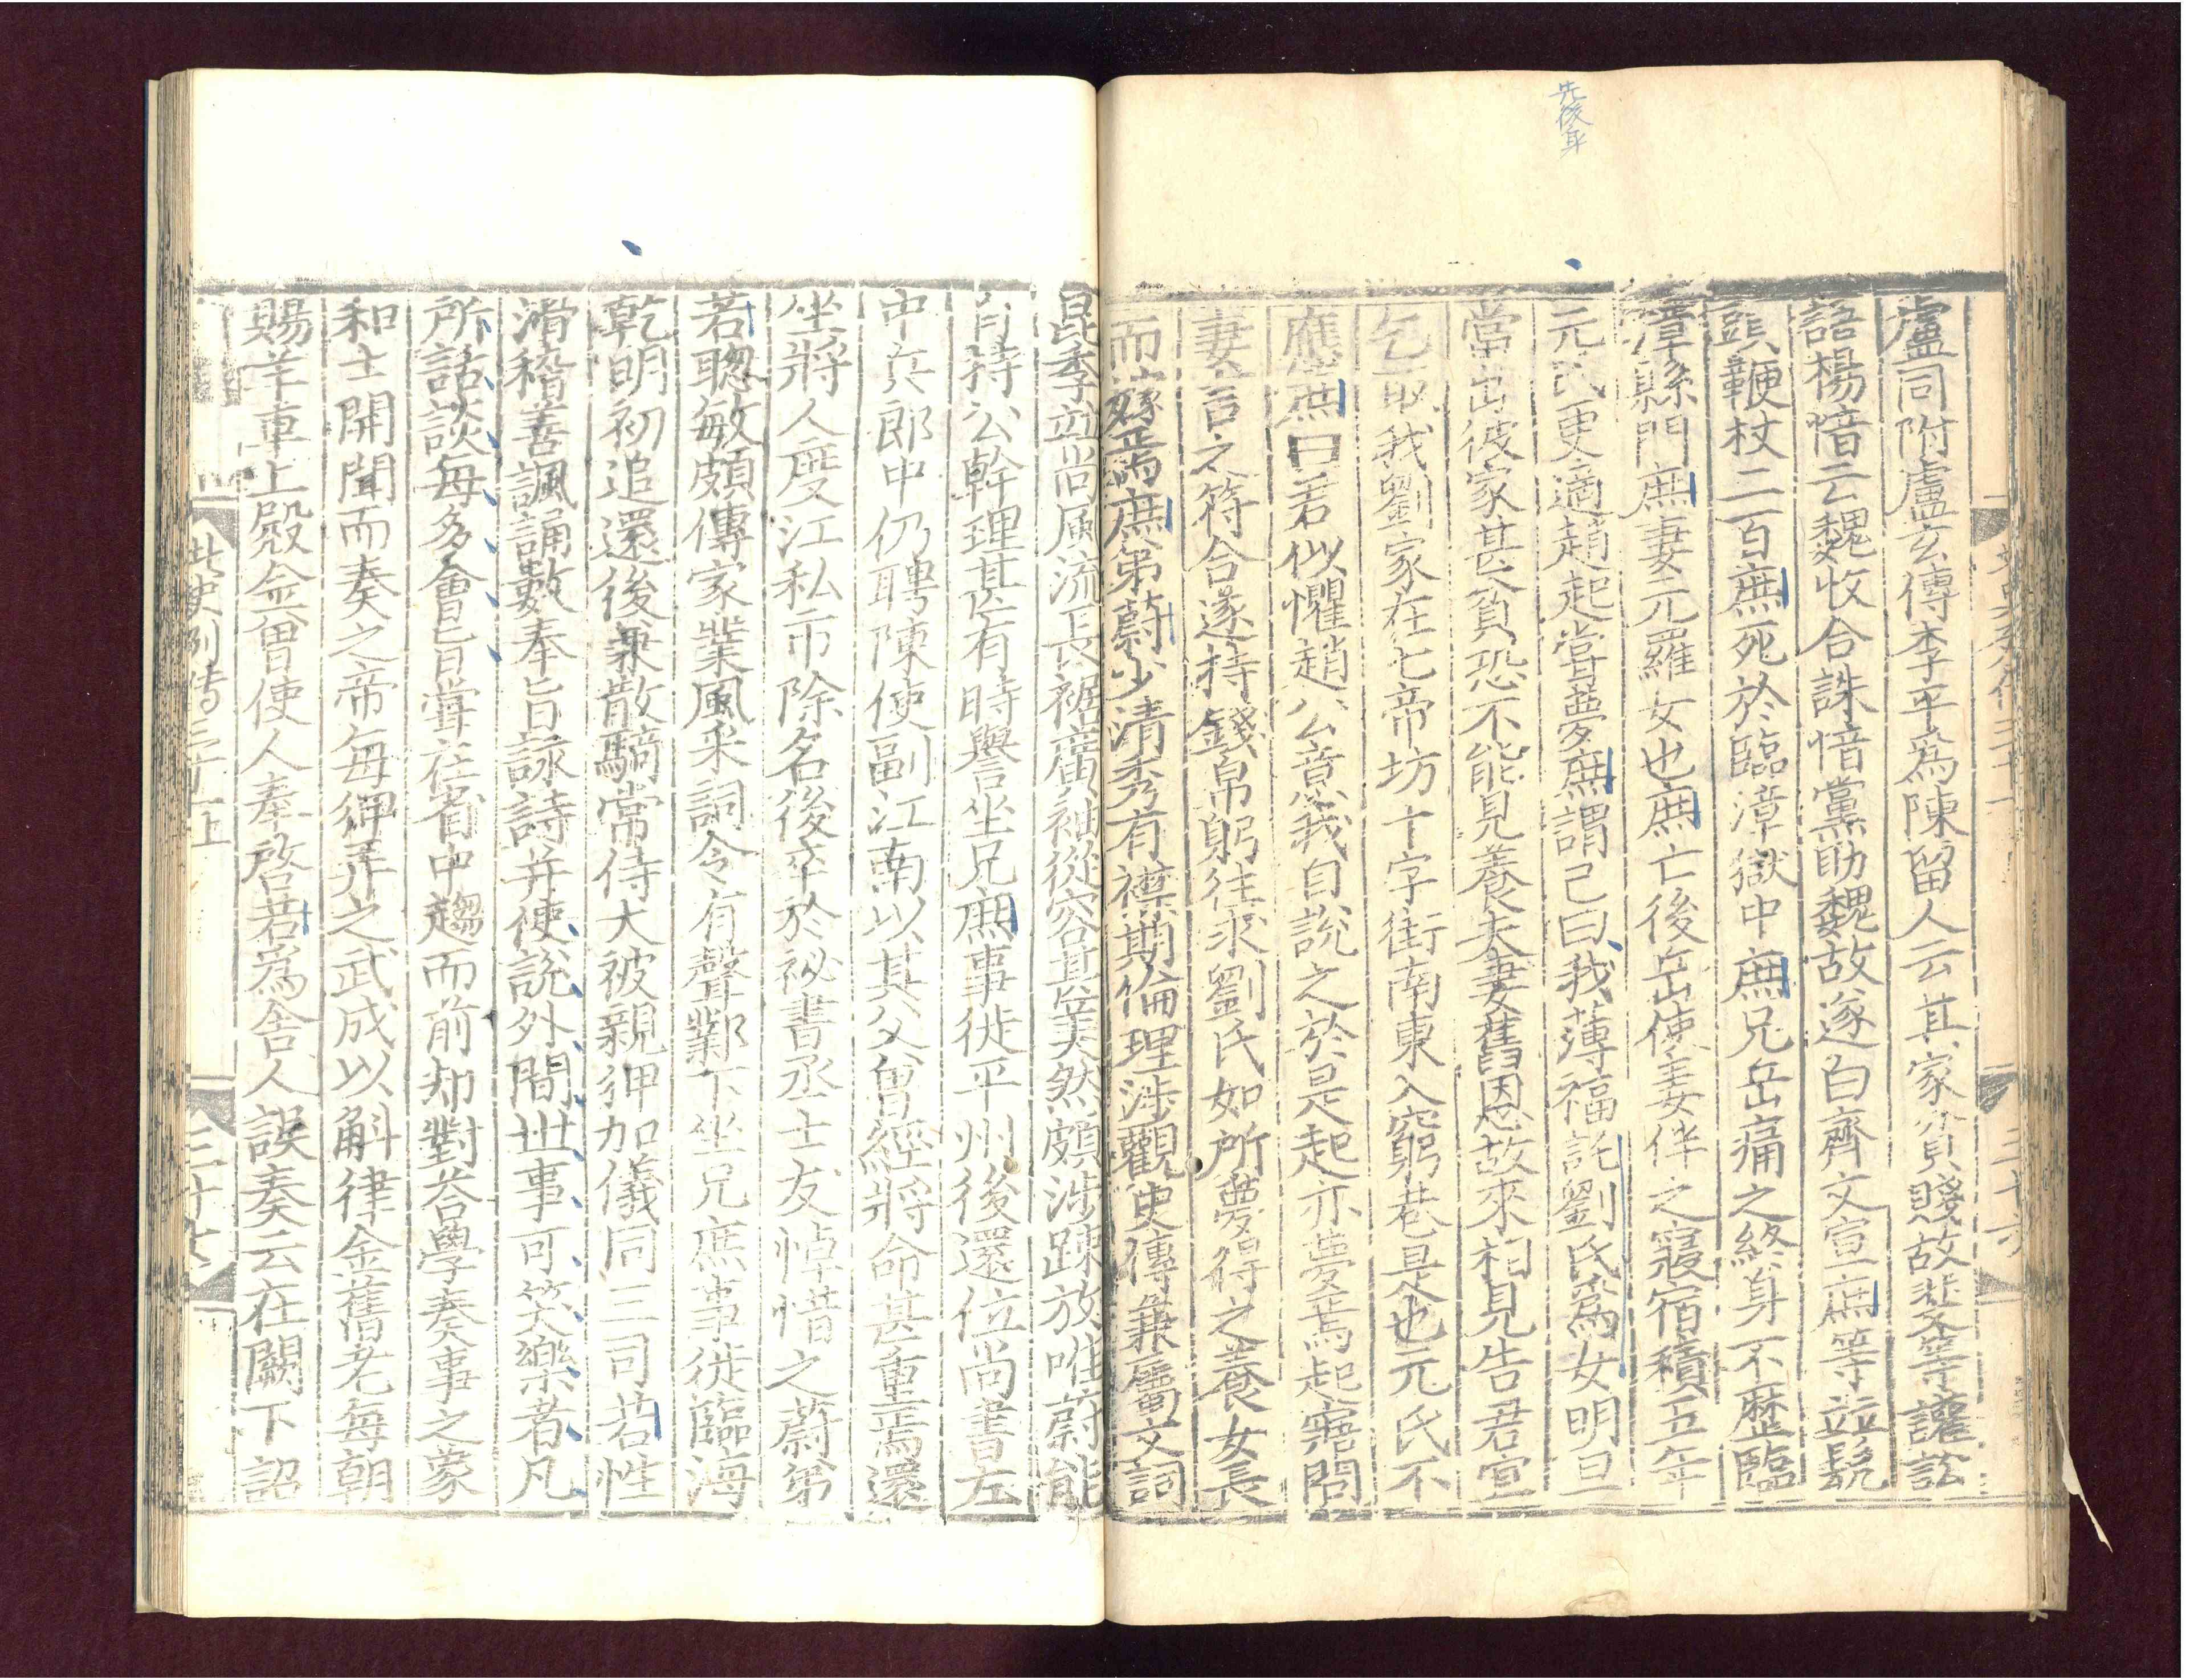 先後身
盧同附盧玄傳李平爲陳留人云其家貧賤故斐等讙訟
語楊愔云魏收合誅愔黨助魏故遂白齊文宣庶等並髡
頭鞭杖二百庶死於臨漳獄中庶兄岳痛之終身不歷臨
漳縣門庶妻元羅女也庶亡後岳使妻伴之寢宿積五年
元氏更適趙起嘗夢庶謂己曰我薄福託劉氏爲女明旦
當出彼家甚貧恐不能見養夫妻舊恩故來相見告君宜
乞取我劉家在七帝坊十字街南東入窮巷是也元氏不
應庶曰君似懼趙公意我自說之於是起亦夢焉起寤問
妻言之符合遂持錢帛躬往求劉氏如所夢得之養女長
而嫁焉庶弟蔚少清秀有襟期倫理涉觀史傳兼屬文詞
昆季並尚風流長裾廣袖從容甚美然頗涉踈放唯蔚能
自持公幹理甚有時譽坐兄庶事徙平州後還位尚書左
中兵郎中仍聘陳使副江南以其父曾經將命甚重焉還
坐將人度江私市除名後卒於祕書丞士友悼惜之蔚弟
若聦敏頗傳家業風采詞令有聲鄴下坐兄庶事徙臨海
乾明初追還後兼散騎常侍大被親狎加儀同三司若性
滑稽善諷誦數奉旨詠詩并使說外間世事可笑樂者凡
所話談每多會旨嘗在省中趨而前却對答學奏事之象
和士開聞而奏之帝每狎弄之武成以斛律金舊老每朝
賜羊車上殿金曾使人奉啓若爲舍人誤奏云在闕下詔
北史列傳三十一
三十六